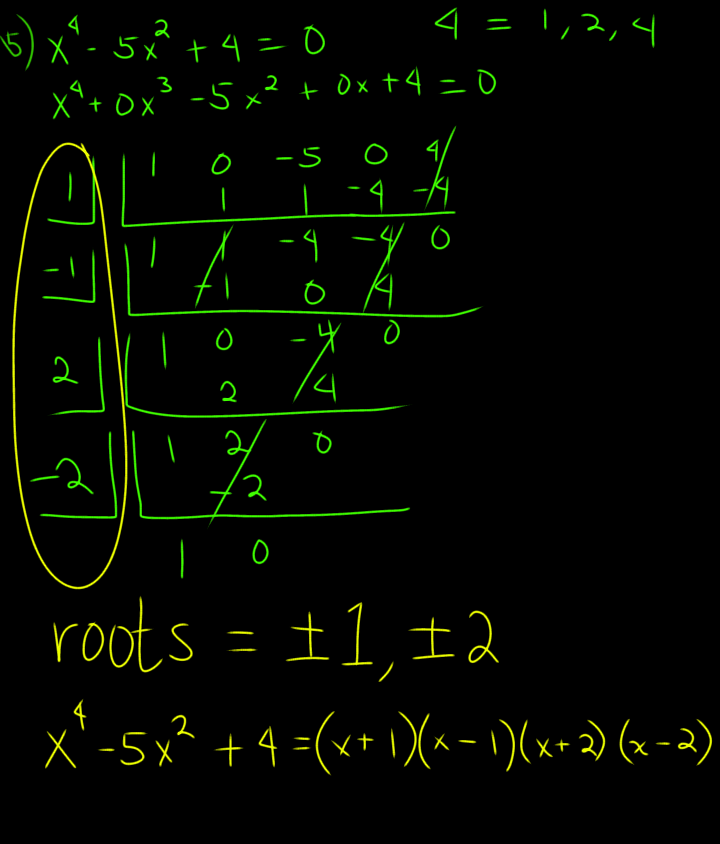 5) x⁴ - 5x² + 4 = 0    4 = 1, 2, 4
x⁴ + 0x³ - 5x² + 0x + 4 = 0
1 | 1 0 -5 0 4
1 1 -4 -4
-1 | 1 1 -4 -4 0
-1 0 4
2 | 1 0 -4 0
2 4
-2 | 1 2 0
-2
1 0
roots = ±1, ±2
x⁴ - 5x² + 4 = (x + 1)(x - 1)(x + 2)(x - 2)